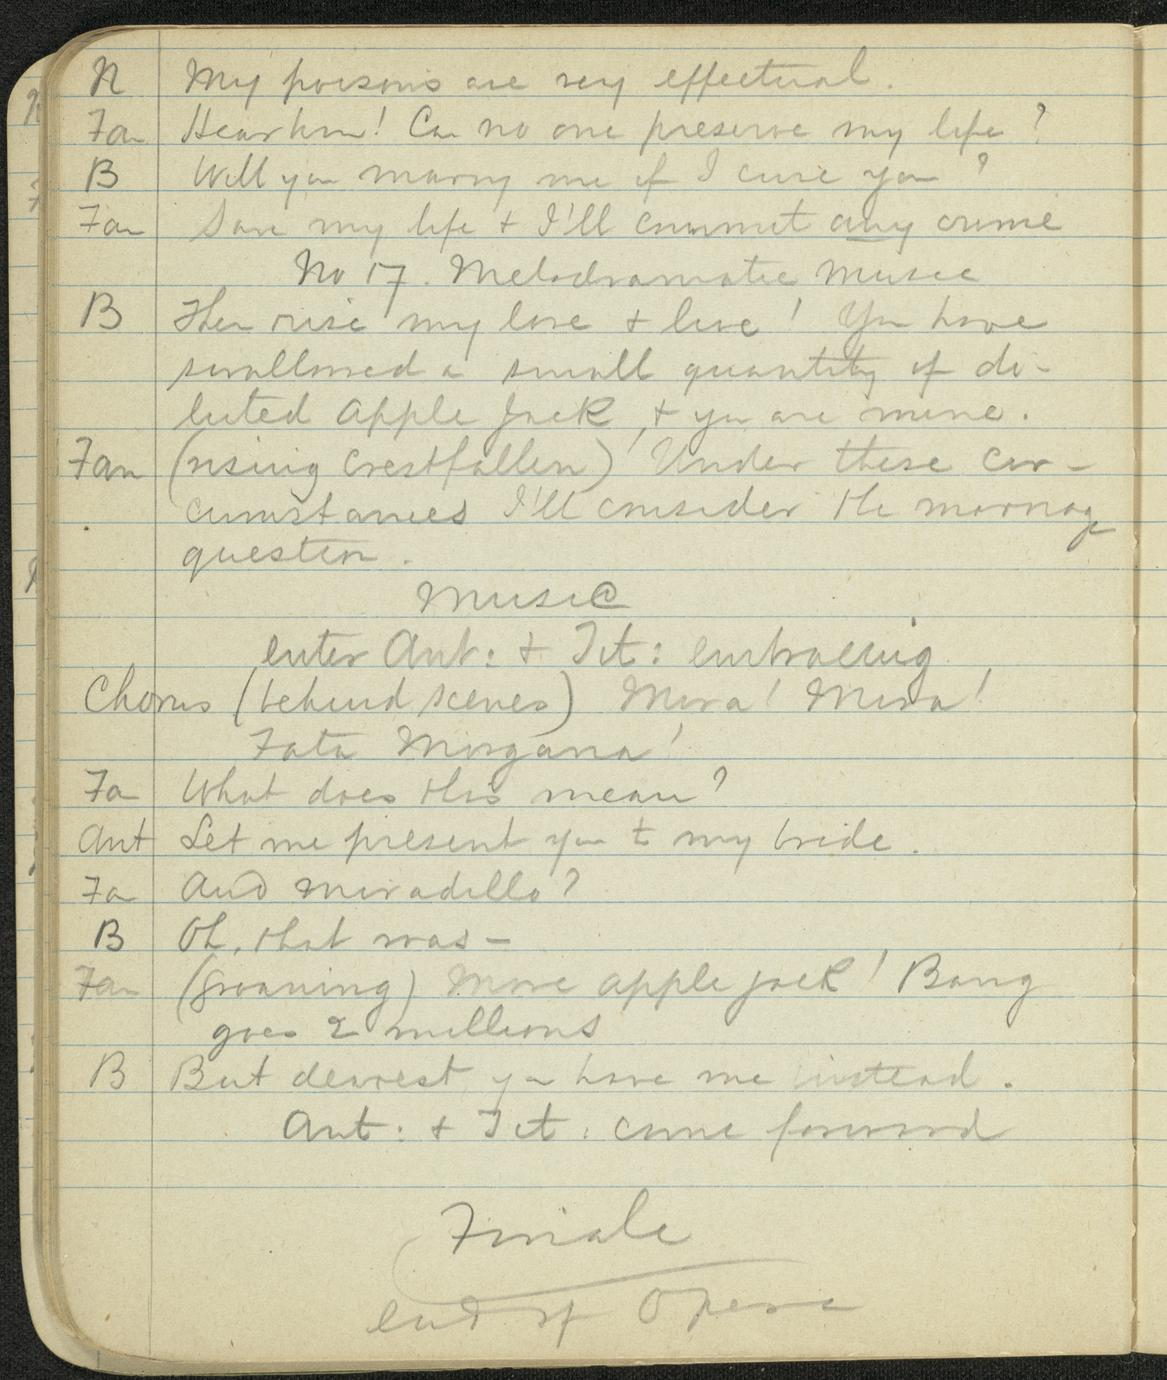 N My poisons are very effectual.
Fan Hear him! Can no one preserve my life?
B Will you marry me if I cure you?
Fan Save my life + I'll commit any crime
No 17. Melodramatic Music
B Then rise my love + live! You have
swallowed a small quantity of di-
luted Apple Jack, + you are mine.
Fan (rising crestfallen) Under these cir-
cumstances I'll consider the marriage
question.
Music
enter Ant: + Tit: embracing
Chorus (behind scenes) Mira! Mira!
Fata Morgana!
Fa What does this mean?
Ant Let me present you to my bride.
Fa And Miradillo?
B Oh, that was—
Fan (groaning) More apple jack! Bang
goes 2 millions
B But dearest you have me instead.
Ant: + Tit: come forward
Finale
end of Opera